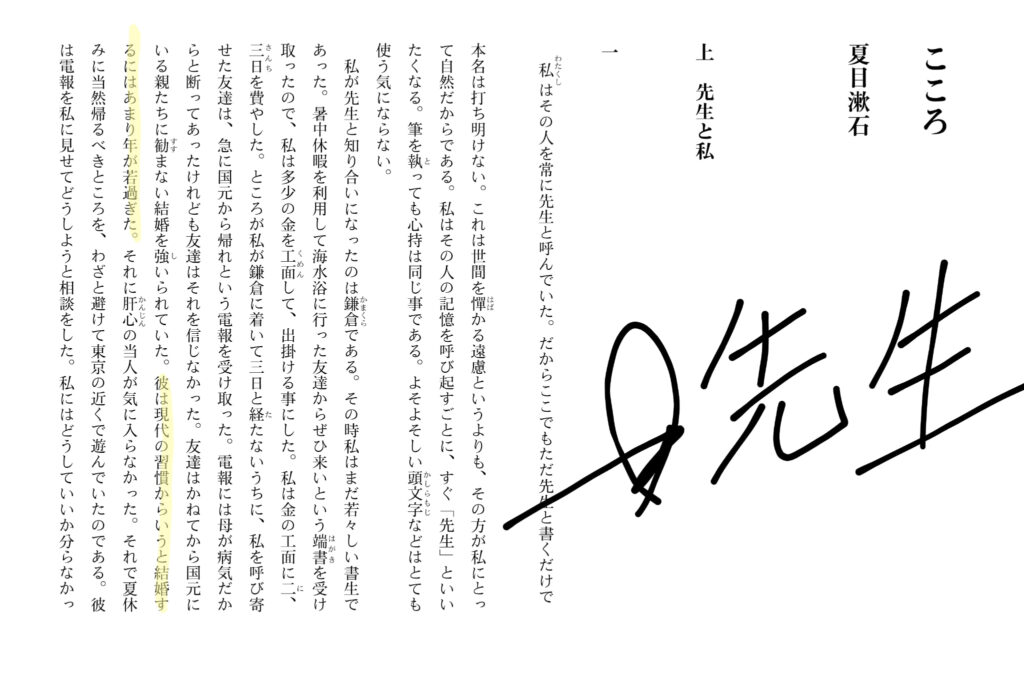 こころ
夏目漱石
上　先生と私
一
わたくし
私はその人を常に先生と呼んでいた。だからここでもただ先生と書くだけで
はば
本名は打ち明けない。これは世間を憚かる遠慮というよりも、その方が私にとっ
て自然だからである。私はその人の記憶を呼び起すごとに、すぐ「先生」といい
と かしらもじ
たくなる。筆を執っても心持は同じ事である。よそよそしい頭文字などはとても
使う気にならない。
かまくら
私が先生と知り合いになったのは鎌倉である。その時私はまだ若々しい書生で
はがき
あった。暑中休暇を利用して海水浴に行った友達からぜひ来いという端書を受け
くめん に
取ったので、私は多少の金を工面して、出掛ける事にした。私は金の工面に二、
さんち た
三日を費やした。ところが私が鎌倉に着いて三日と経たないうちに、私を呼び寄
せた友達は、急に国元から帰れという電報を受け取った。電報には母が病気だか
らと断ってあったけれども友達はそれを信じなかった。友達はかねてから国元に
すす し
いる親たちに勧まない結婚を強いられていた。彼は現代の習慣からいうと結婚す
かんじん
るにはあまり年が若過ぎた。それに肝心の当人が気に入らなかった。それで夏休
みに当然帰るべきところを、わざと避けて東京の近くで遊んでいたのである。彼
は電報を私に見せてどうしようと相談をした。私にはどうしていいか分らなかっ
先生